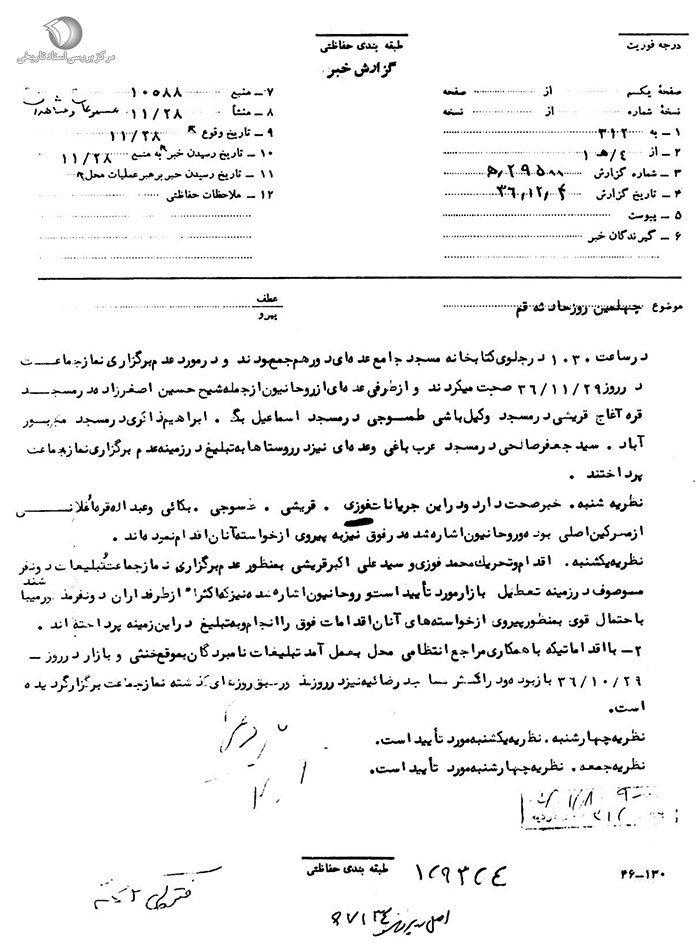 مرکز بررسی اسناد تاریخی
درجه فوریت
طبقه بندی حفاظتی
گزارش خبر
صفحهٔ یکم از صفحه
نسخهٔ شماره از نسخه
۱ــ به ۳۱۲
۲ــ از ۴/ هـ ۱
۳ــ شماره گزارش
۴ــ تاریخ گزارش ۳۶٫۱۲٫۴
۵ــ پیوست
۶ــ گیرندگان خبر
۷ــ منبع ۱۰۵۸۸
۸ــ منشأ ۱۱/۲۸
۹ــ تاریخ وقوع ۱۱/۲۸
۱۰ــ تاریخ رسیدن خبر به منبع ۱۱/۲۸
۱۱ــ تاریخ رسیدن خبر برهبر عملیات محل
۱۲ــ ملاحظات حفاظتی
موضوع چهلمین روز حادثه قم
عطف
پیرو
در ساعت ۱۰۳۰ در جلوی کتابخانه مسجد جامع عده‌ای دور هم جمع بودند و در مورد عدم برگزاری نماز جماعت
در روز ۳۶/۱۱/۲۹ صحبت میکردند و از طرفی عده‌ای از روحانیون از جمله شیخ حسین اصغرزاده در مسجد
قره آغاج قریشی در مسجد وکیل باشی طسوجی در مسجد اسماعیل بگ . ابراهیم ذاثری در مسجد
آباد . سید جعفر صالحی در مسجد عرب باغی وعده‌ای نیز در روستاها به تبلیغ در زمینه عدم برگزاری نماز جماعت
پرداختند .
نظریه شنبه . خبر صحت دارد و در این جریانات فوزی . قریشی . غسوجی . بکائی و عبداله قره
از محرکین اصلی بوده و روحانیون اشاره شده در فوق نیز به پیروی از خواسته آنان اقدام نموده‌اند .
نظریه یکشنبه . اقدام و تحریک محمد فوزی و سید علی اکبر قریشی بمنظور عدم برگزاری نماز جماعت و تبلیغات دو نفر
موصوف در زمینه تعطیل بازار مورد تأیید است و روحانیون اشاره شده نیز که اکثراً از طرفداران دو نفر مذکور میباشند
با احتمال قوی بمنظور پیروی از خواسته‌های آنان اقدامات فوق را انجام و به تبلیغ در این زمینه پرداخته‌اند .
۲ــ با اقداماتیکه با همکاری مراجع انتظامی محل بعمل آمد تبلیغات نامبردگان بموقع خنثی و بازار در روز ــ
۳۶/۱۰/۲۹ باز بوده و در اکثر مساجد رضائیه نیز در روز مذکور طبق روزهای گذشته نماز جماعت برگزار گردیده
است.
نظریه چهارشنبه . نظریه یکشنبه مورد تأیید است.
نظریه جمعه . نظریه چهارشنبه مورد تأیید است.
طبقه بندی حفاظتی
۴۶-۱۳۰